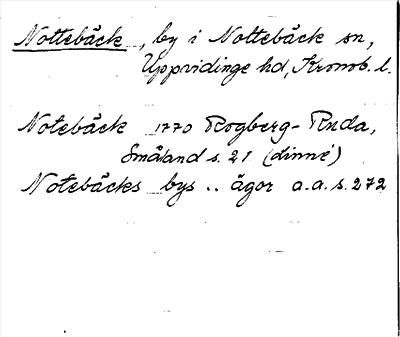 Nottebäck, by i Nottebäck sn,
Uppvidinge hd, Kronob. l.
Notebäck 1770 Rogberg-Ruda,
Småland s. 21 (Linné)
Notebäcks bys .. ägor a.a.s. 272